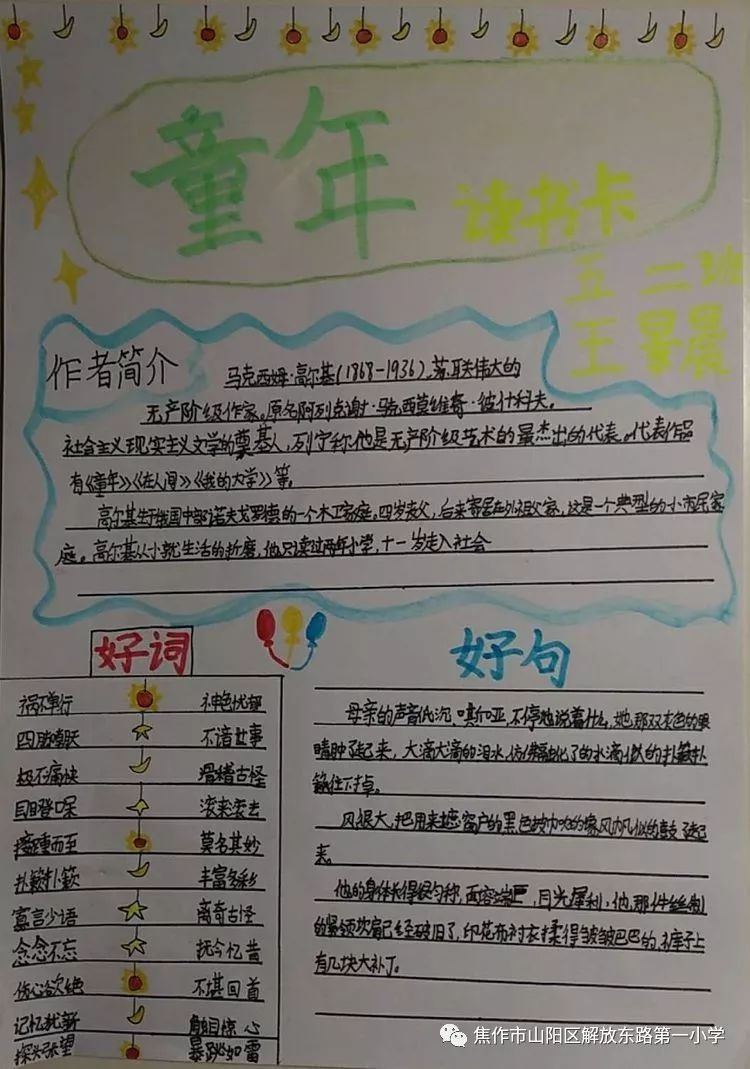 童年
读书卡
五 二班
王晏晨
作者简介
马克西姆·高尔基(1868-1936),苏联伟大的
无产阶级作家。原名阿列克谢·马克西莫维奇·彼什科夫。
社会主义现实主义文学的奠基人,列宁称他是无产阶级艺术的最杰出的代表。代表作品
有《童年》《在人间》《我的大学》等。
高尔基生于俄国中部诺夫戈罗德的一个木工家庭。四岁丧父,后来寄居在外祖父家,这是一个典型的小市民家
庭。高尔基从小就生活的折磨,他只读过两年小学,十一岁走入社会
好词
祸不单行 神色忧郁
四脚朝天 不谙世事
极不痛快 滑稽古怪
目瞪口呆 滚来滚去
接踵而至 莫名其妙
扑簌扑簌 丰富多彩
寡言少语 离奇古怪
念念不忘 抚今忆昔
伤心欲绝 不堪回首
记忆犹新 触目惊心
探头张望 暴跳如雷
好句
母亲的声音低沉、嘶哑,不停地说着什么,她那双灰色的眼
睛肿了起来,大滴大滴的泪水,仿佛融化了的水滴似的扑簌扑
簌往下掉。
风很大,把用来遮窗户的黑色披巾吹的像风帆似的鼓了起
来。
他的身体长得很匀称,面容端正,目光犀利,他那件丝制
的紧领坎肩已经破旧了,印花布衬衣揉得皱皱巴巴的,裤子上
有几块大补丁。
焦作市山阳区解放东路第一小学